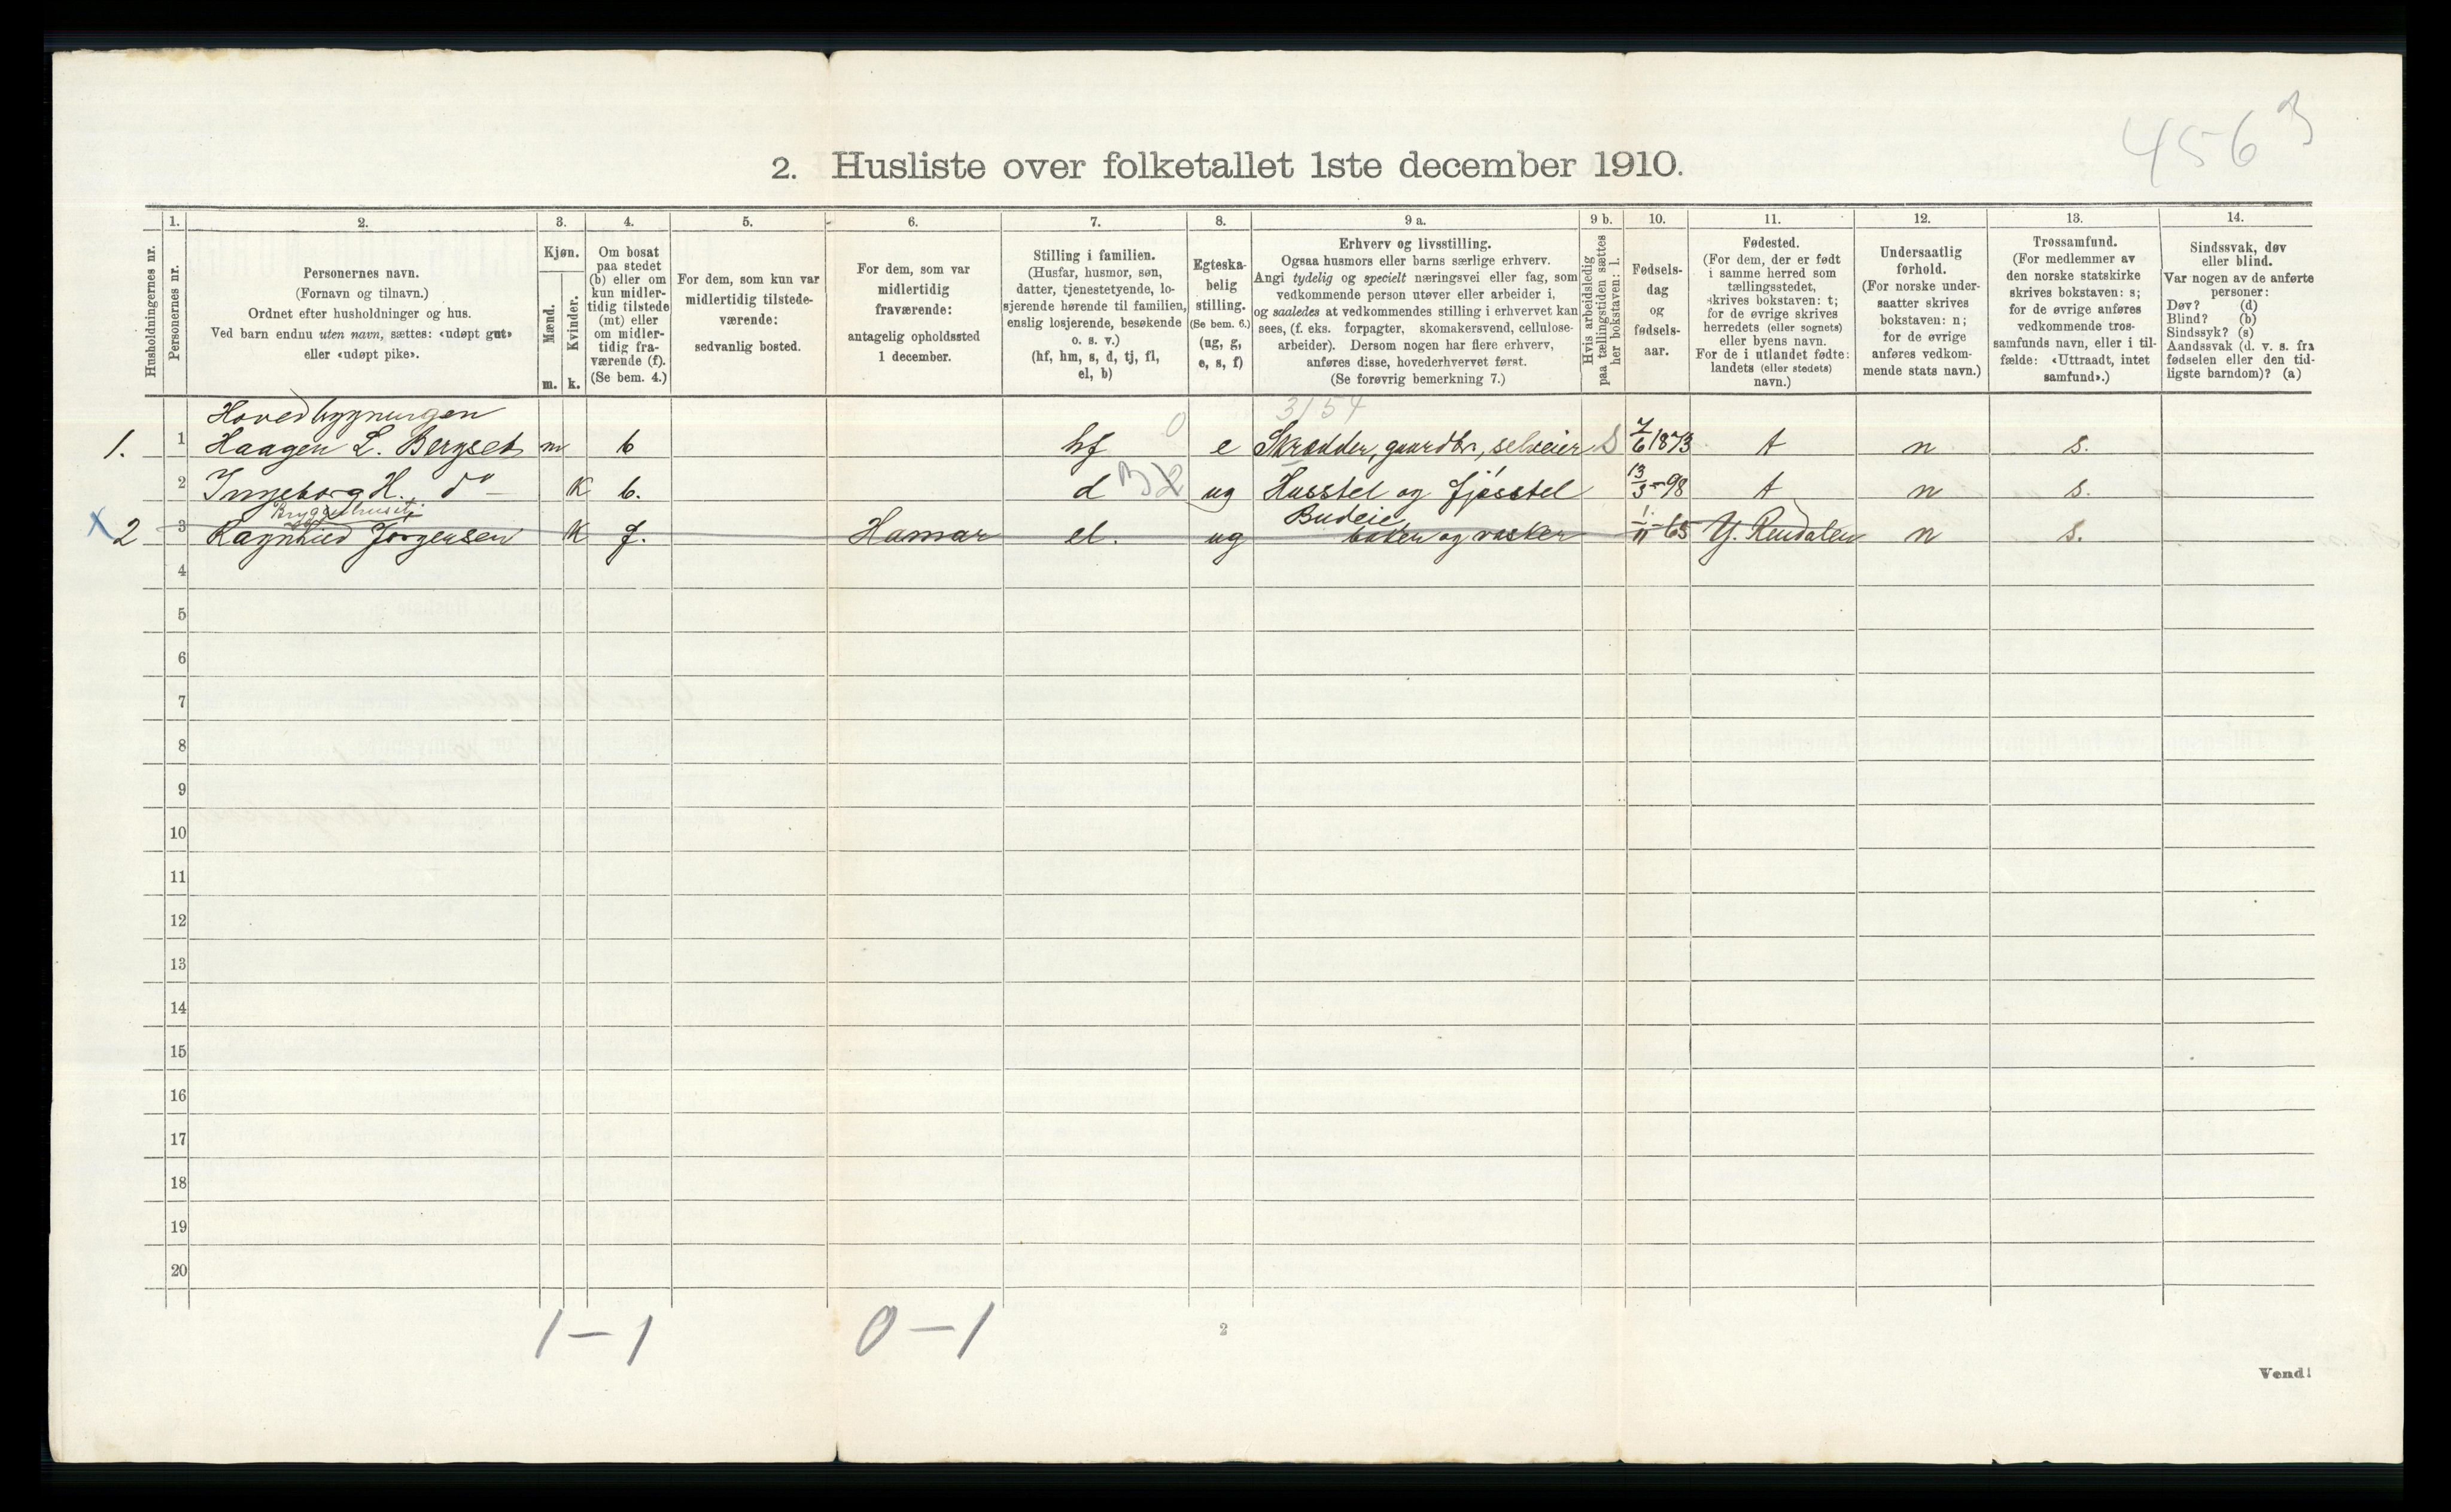 4563
2. Husliste over folketallet 1ste december 1910.
1. 2. 3. 4. 5. 6. 7. 8. 9 a. 9 b. 10. 11. 12. 13. 14.
Husholdningernes nr.
Personernes nr.
Personernes navn.
(Fornavn og tilnavn.)
Ordnet efter husholdninger og hus.
Ved barn endnu uten navn, sættes: «udøpt gut»
eller «udøpt pike».
Kjøn.
Mænd.
Kvinder.
m. k.
Om bosat
paa stedet
(b) eller om
kun midler-
tidig tilstede
(mt) eller
om midler-
tidig fra-
værende (f).
(Se bem. 4.)
For dem, som kun var
midlertidig tilstede-
værende:
sedvanlig bosted.
For dem, som var
midlertidig
fraværende:
antagelig opholdssted
1 december.
Stilling i familien.
(Husfar, husmor, søn,
datter, tjenestetyende, lo-
sjerende hørende til familien,
enslig losjerende, besøkende
o. s. v.)
(hf, hm, s, d, tj, fl,
el, b)
Egteska-
belig
stilling.
(Se bem. 6.)
(ug, g,
e, s, f)
Erhverv og livsstilling.
Ogsaa husmors eller barns særlige erhverv.
Angi tydelig og specielt næringsvei eller fag, som
vedkommende person utøver eller arbeider i,
og saaledes at vedkommendes stilling i erhvervet kan
sees, (f. eks. forpagter, skomakersvend, cellulose-
arbeider). Dersom nogen har flere erhverv,
anføres disse, hovederhvervet først.
(Se forøvrig bemerkning 7.)
Hvis arbeidsledig
paa tællingstiden sættes
her bokstaven: l.
Fødsels-
dag
og
fødsels-
aar.
Fødested.
(For dem, der er født
i samme herred som
tællingsstedet,
skrives bokstaven: t;
for de øvrige skrives
herredets (eller sognets)
eller byens navn.
For de i utlandet fødte:
landets (eller stedets)
navn.)
Undersaatlig
forhold.
(For norske under-
saatter skrives
bokstaven: n;
for de øvrige
anføres vedkom-
mende stats navn.)
Trossamfund.
(For medlemmer av
den norske statskirke
skrives bokstaven: s;
for de øvrige anføres
vedkommende tros-
samfunds navn, eller i til-
fælde: «Uttraadt, intet
samfund».)
Sindssvak, døv
eller blind.
Var nogen av de anførte
personer:
Døv? (d)
Blind? (b)
Sindssyk? (s)
Aandssvak (d. v. s. fra
fødselen eller den tid-
ligste barndom)? (a)
Hovedbygningen 3154
1. 1 Haagen L. Bergset m b hf 0 e Skrædder, gaardbr, selveier S 7/6 1873 t n s.
2 Ingeborg H. do - K b. d ug Husstel og fjøsstel 13/3-98 t n s.
Bryggerhuset: Budeie
x 2 3 Ragnhild Jørgensen K f. Hamar el. ug baker og vasker 1/11-65 Y. Rendalen n s.
4
5
6
7
8
9
10
11
12
13
14
15
16
17
18
19
20
1-1 0-1
2
Vend!